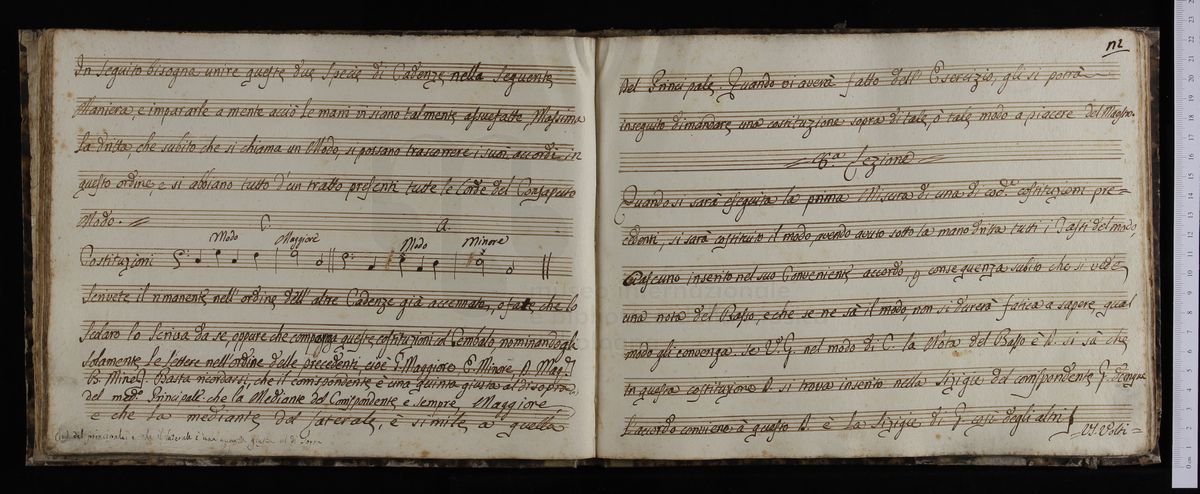 In seguito bisogna unire queste due specie di Cadenze nella seguente
Maniera, e impararle a mente acciò le mani in siano talmente assuefatte Massima
la dritta, che subito che si chiama un Modo, si possano trascorrere i suoi accordi in
questo ordine, e si abbiano tutto d'un tratto presenti tutte le Corde del
Modo.
C. A.
Modo Maggiore Modo Minore
Costituzioni
Scrivete il rimanente nell'ordine dell'altre Cadenze già accennate, e fate che lo
Scolaro lo Scriva da se, oppure che componga queste costituzioni al Cembalo nominandogli
solamente le Lettere nell'ordine delle precedenti, cioè G. Maggiore E. Minore, D. Magg.
B. Min. Basta ricordarsi, che il corrispondente è una quinta giusta al di sopra
del modo Principale: che la Mediante del Corrispondente è sempre Maggiore
e che la mediante del laterale, è simile a quella
del principale, e che il laterale è una quarta giusta al di sopra
112
del Principale. Quando vi averà fatto dell'Esercizio, gli si potrà
in seguito dimandare una costituzione sopra di tale, ò tale modo a piacere del Maestro.
8.a Lezione
Quando si sarà eseguita la prima Misura di una di cod.e costituzioni pre=
cedenti, si sarà costituito il modo, avendo avuto sotto la mano dritta tutti i Tasti del modo,
Ciascuno inserito nel suo Conveniente accordo, p conseguenza subito che si vede
una nota del Basso, e che se ne sà il modo non si durerà fatica a sapere, qual
modo gli convenga. Se V.G. nel modo di C. la Nota del Basso è D. si sà che
in questa costituzione D. si trova inserito nella Sizigia del corrispondente G. dunque
l'accordo conviene à questo D. è la Sizigia di G. così degli altri
V. Volti=